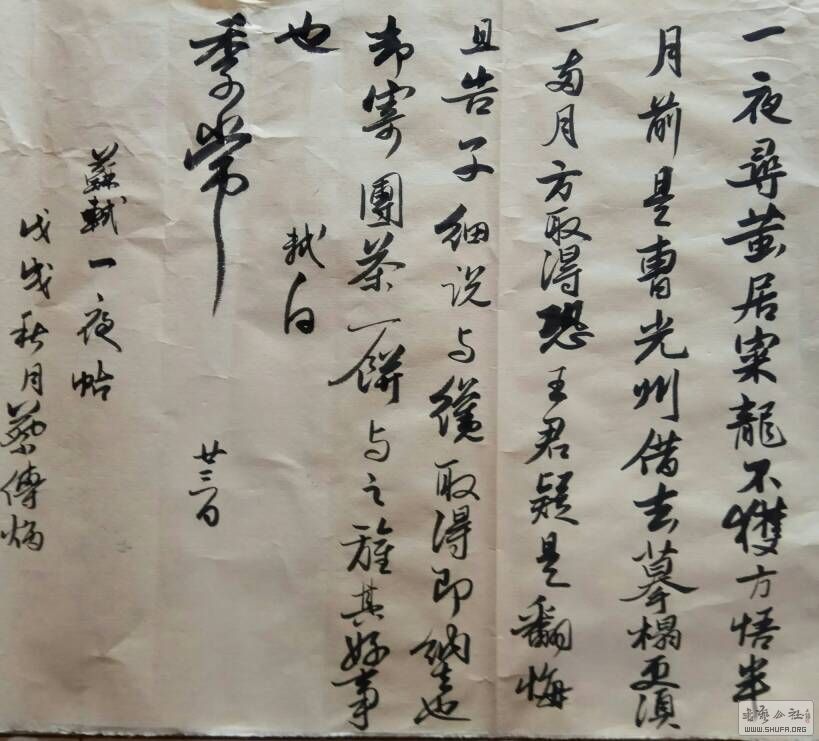 一夜尋黃居寀龍不獲方悟半
月前是曹光州借去摹榻更須
一兩月方取得恐王君疑是翻悔
且告子細说与纔取得即納去也
却寄團茶一餅与之旌其好事
也
軾白
季常
廿三日
蘇軾一夜帖
戊戌秋月蔡傳
WWW.SHUFA.ORG